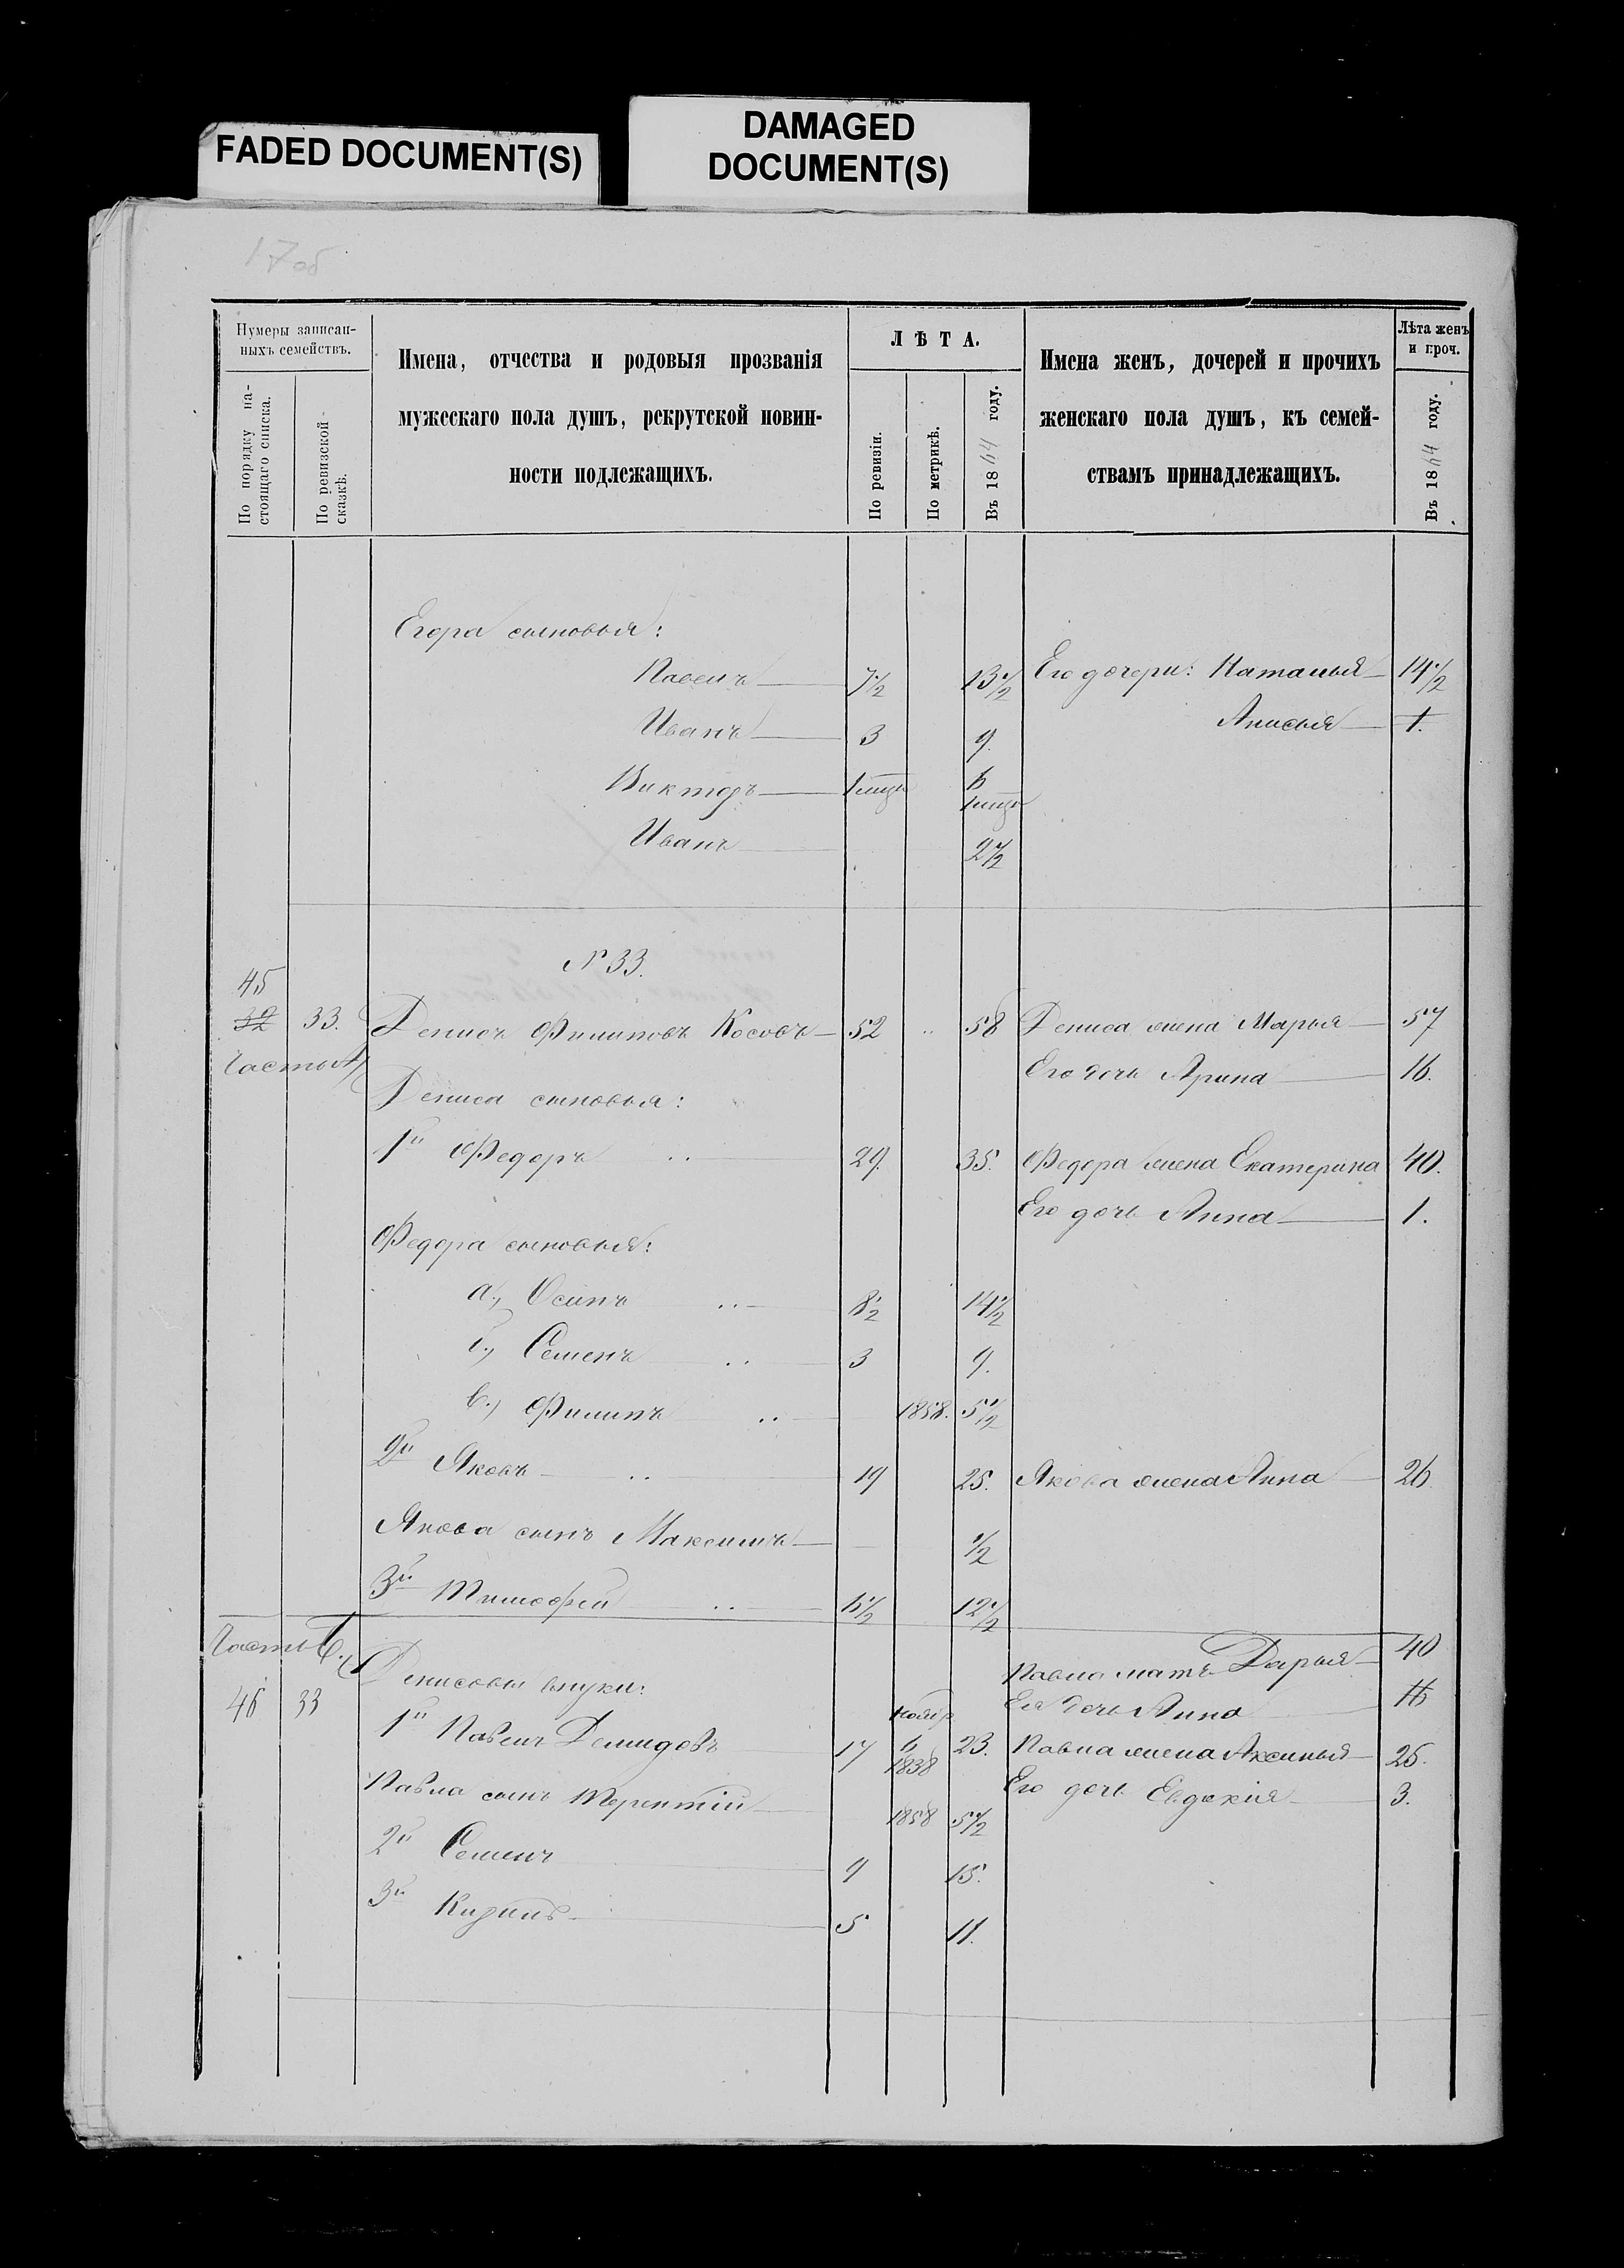 FADED DOCUMENT(S)
DAMAGED
DOCUMENT(S)
17об
Нумеры записан-
ныхъ семействъ.
По порядку на-
стоящаго списка.
По ревизской
сказкѣ.
Имена, отчества и родовыя прозванія
мужескаго пола душъ, рекрутской повин-
ности подлежащихъ.
ЛѢТА.
По ревизіи.
По метрикѣ.
Въ 1864 году.
Имена женъ, дочерей и прочихъ
женскаго пола душъ, къ семей-
ствамъ принадлежащихъ.
Лѣта женъ
и проч.
Въ 1864 году.
Егора сыновья:
Павелъ 7½ 13½ Его дочери: Наталья 14½
Иванъ 3 9. Анисья 1.
Викторъ 1 мѣся 6 1 мѣся
Иванъ 2½
№ 33.
45
32 33. Денисъ Филиповъ Косовъ 52 58 Дениса жена Марья 57
Часть А Его дочь Арина 16.
Дениса сыновья:
1й Федоръ 29. 35. Федора жена Екатерина 40.
Его дочь Анна 1.
Федора сыновья:
а., Осипъ 8½ 14½
б., Семенъ 3 9.
в., Филипъ 1858. 5½
2й Яковъ 19 25. Якова жена Анна 26
Якова сынъ Максимъ ½
3й Тимофей 6½ 12½
Часть Б. Павла мать Дарья 40
Денисовы внуки: Ея дочь Анна 16
46 33 1й Павелъ Демидовъ 17 ноябр 6 1838 23. Павла жена Аксинья 25.
Его дочь Евдокія 3.
Павла сынъ Терентій 1858 5½
2й Семенъ 9 15.
3й 5 11.